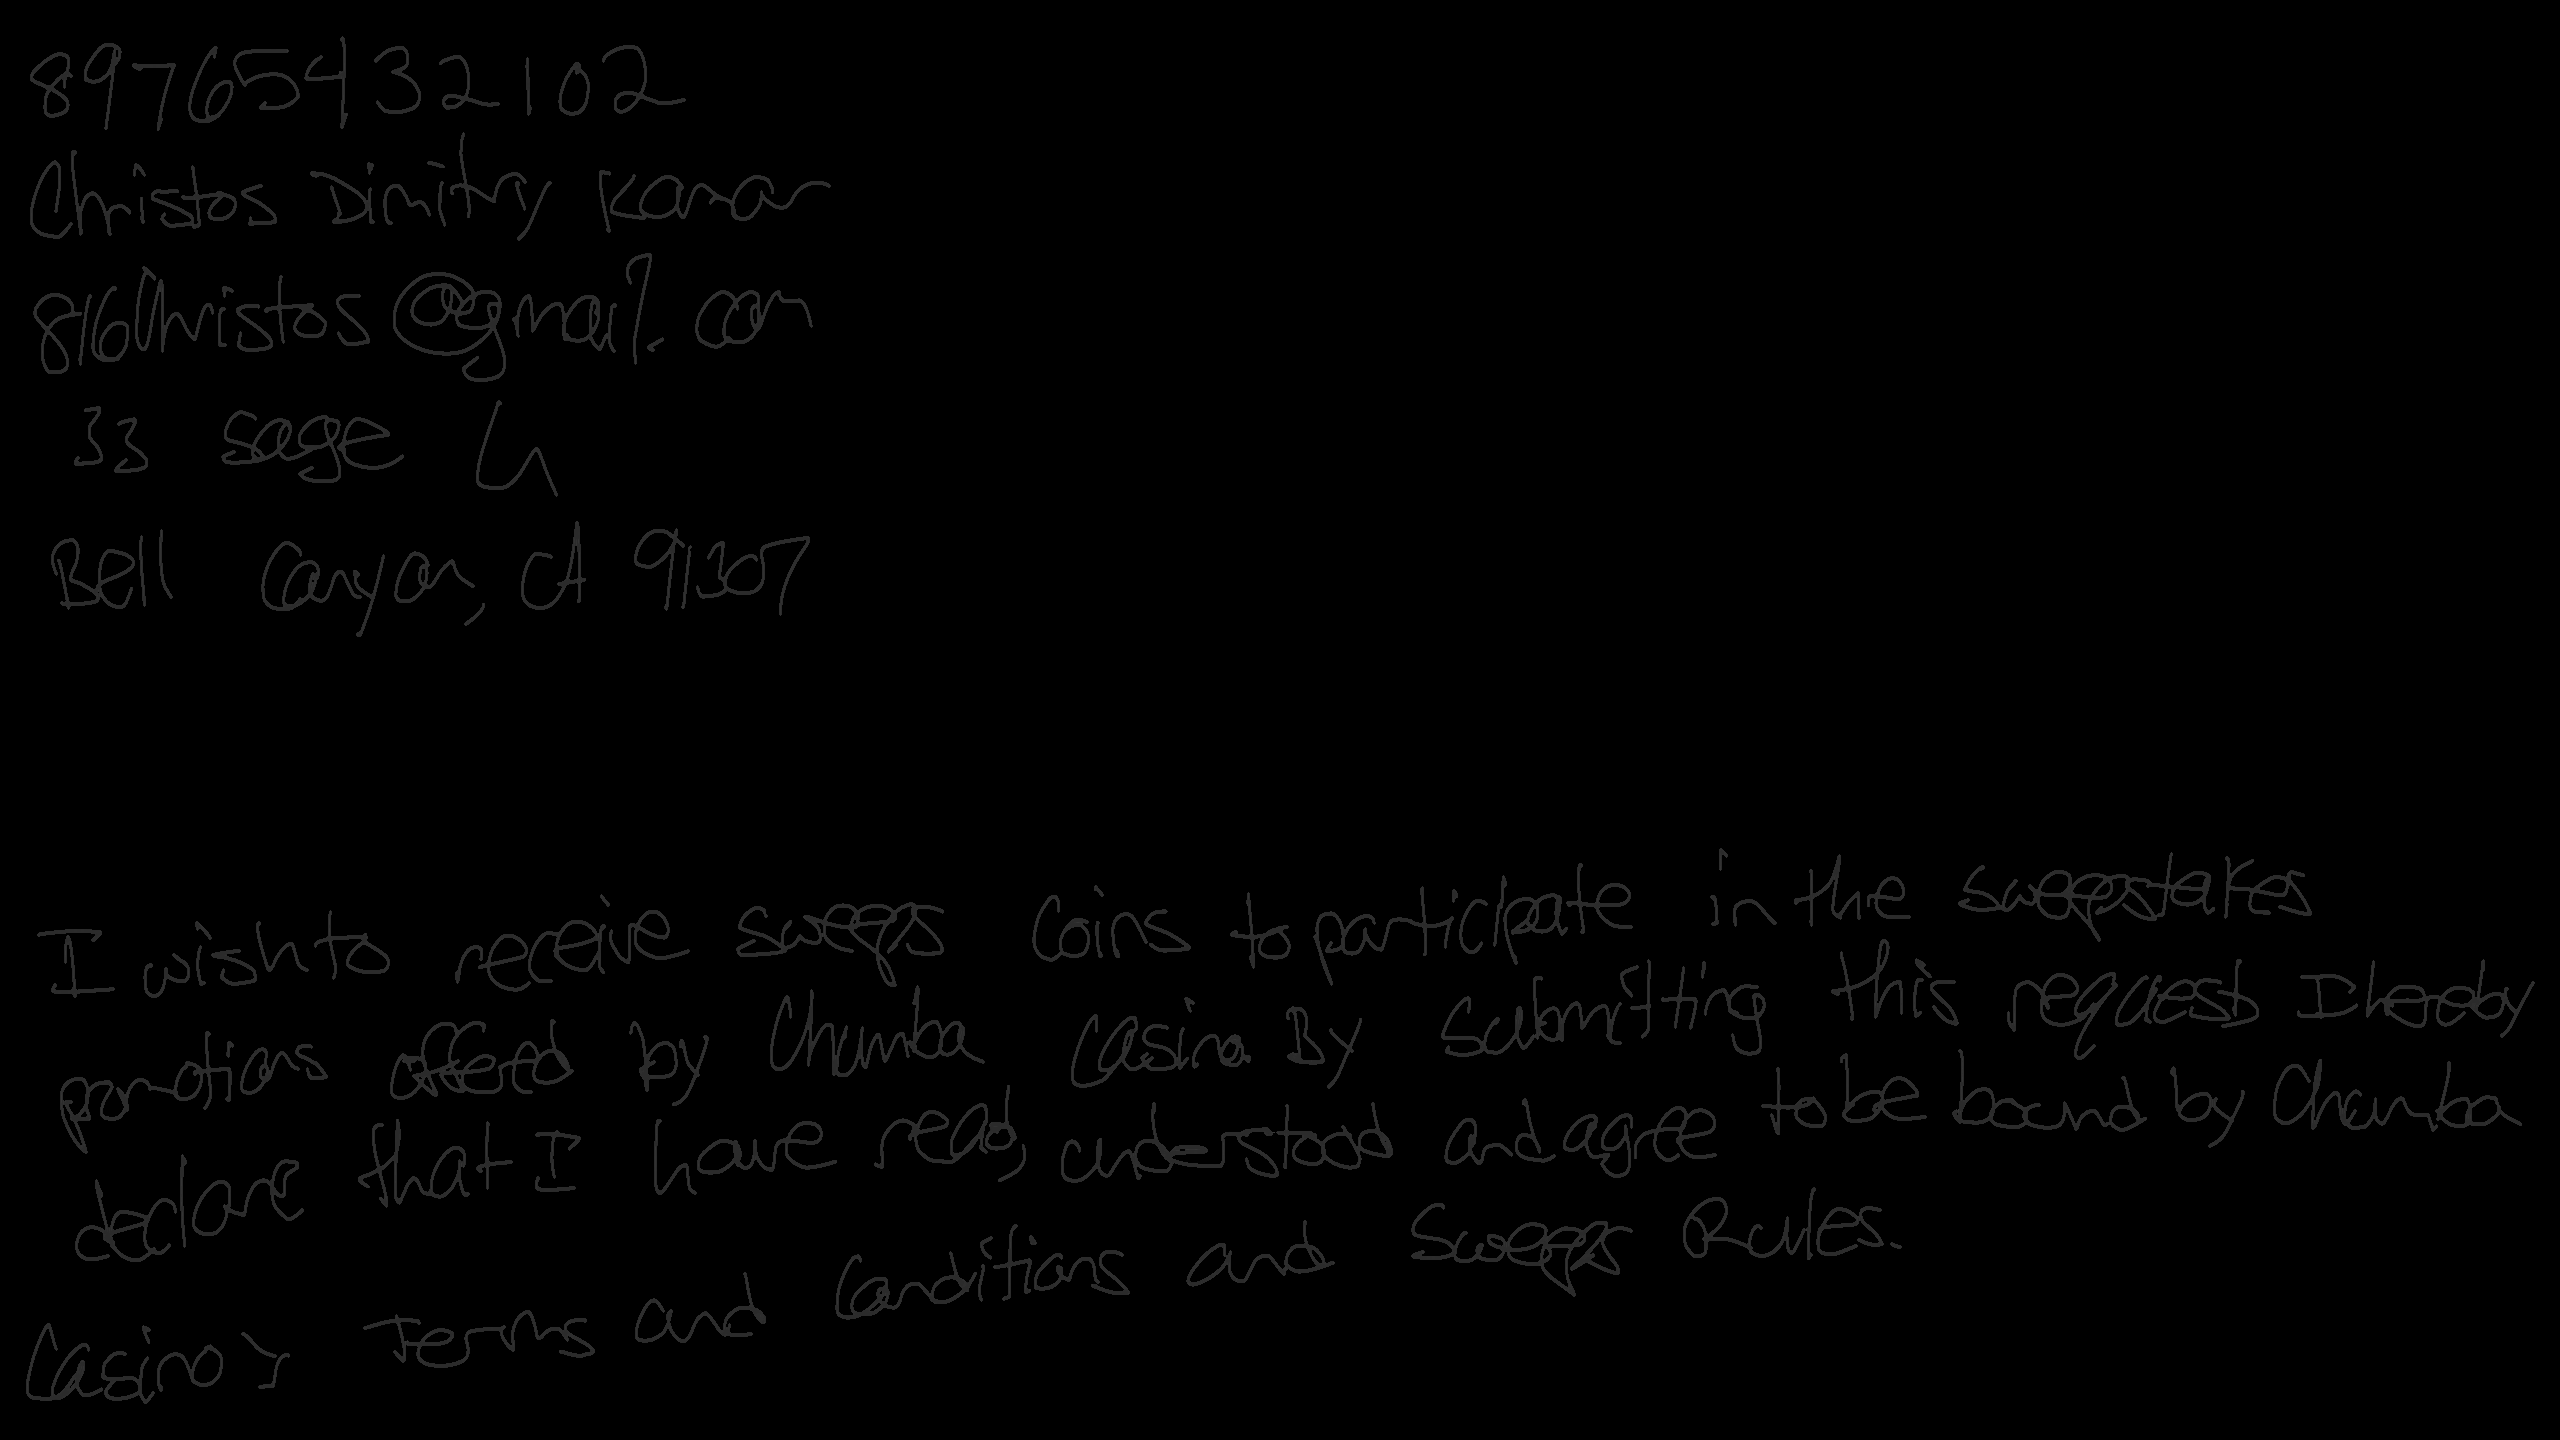 89765432102
Christos Dimitry Karar
816Christos@gmail.com
33 Sage Ln
Bell Canyon, CA 91307
I wish to receive sweeps Coins to participate in the sweepstakes
promotions offered by Chumba Casino. By submitting this request I hereby
declare that I have read, understood and agree to be bound by Chumba
Casino's Terms and Conditions and Sweeps Rules.